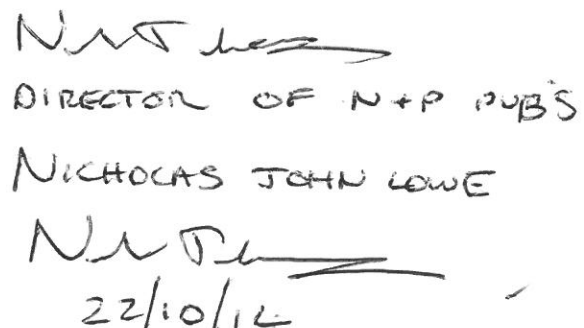 DIRECTOR OF N+P PUB'S
NICHOLAS JOHN LOWE
22/10/12